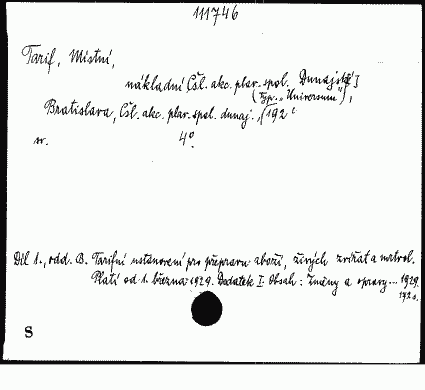 111746
Tarif, Místní,
nákladní Čsl. akc. plav. spol. Dunajské]
(Typ. „Universum"),
Bratislava, Čsl. akc. plav. spol. dunaj., [192
sv. 4°.
Díl 1., odd. B. Tarifní ustanovení pro přepravu zboží, živých zvířat a mrtvol.
Platí od 1. března 1929. Dodatek I. Obsah: Změny a opravy... 1929.
172 s.
8